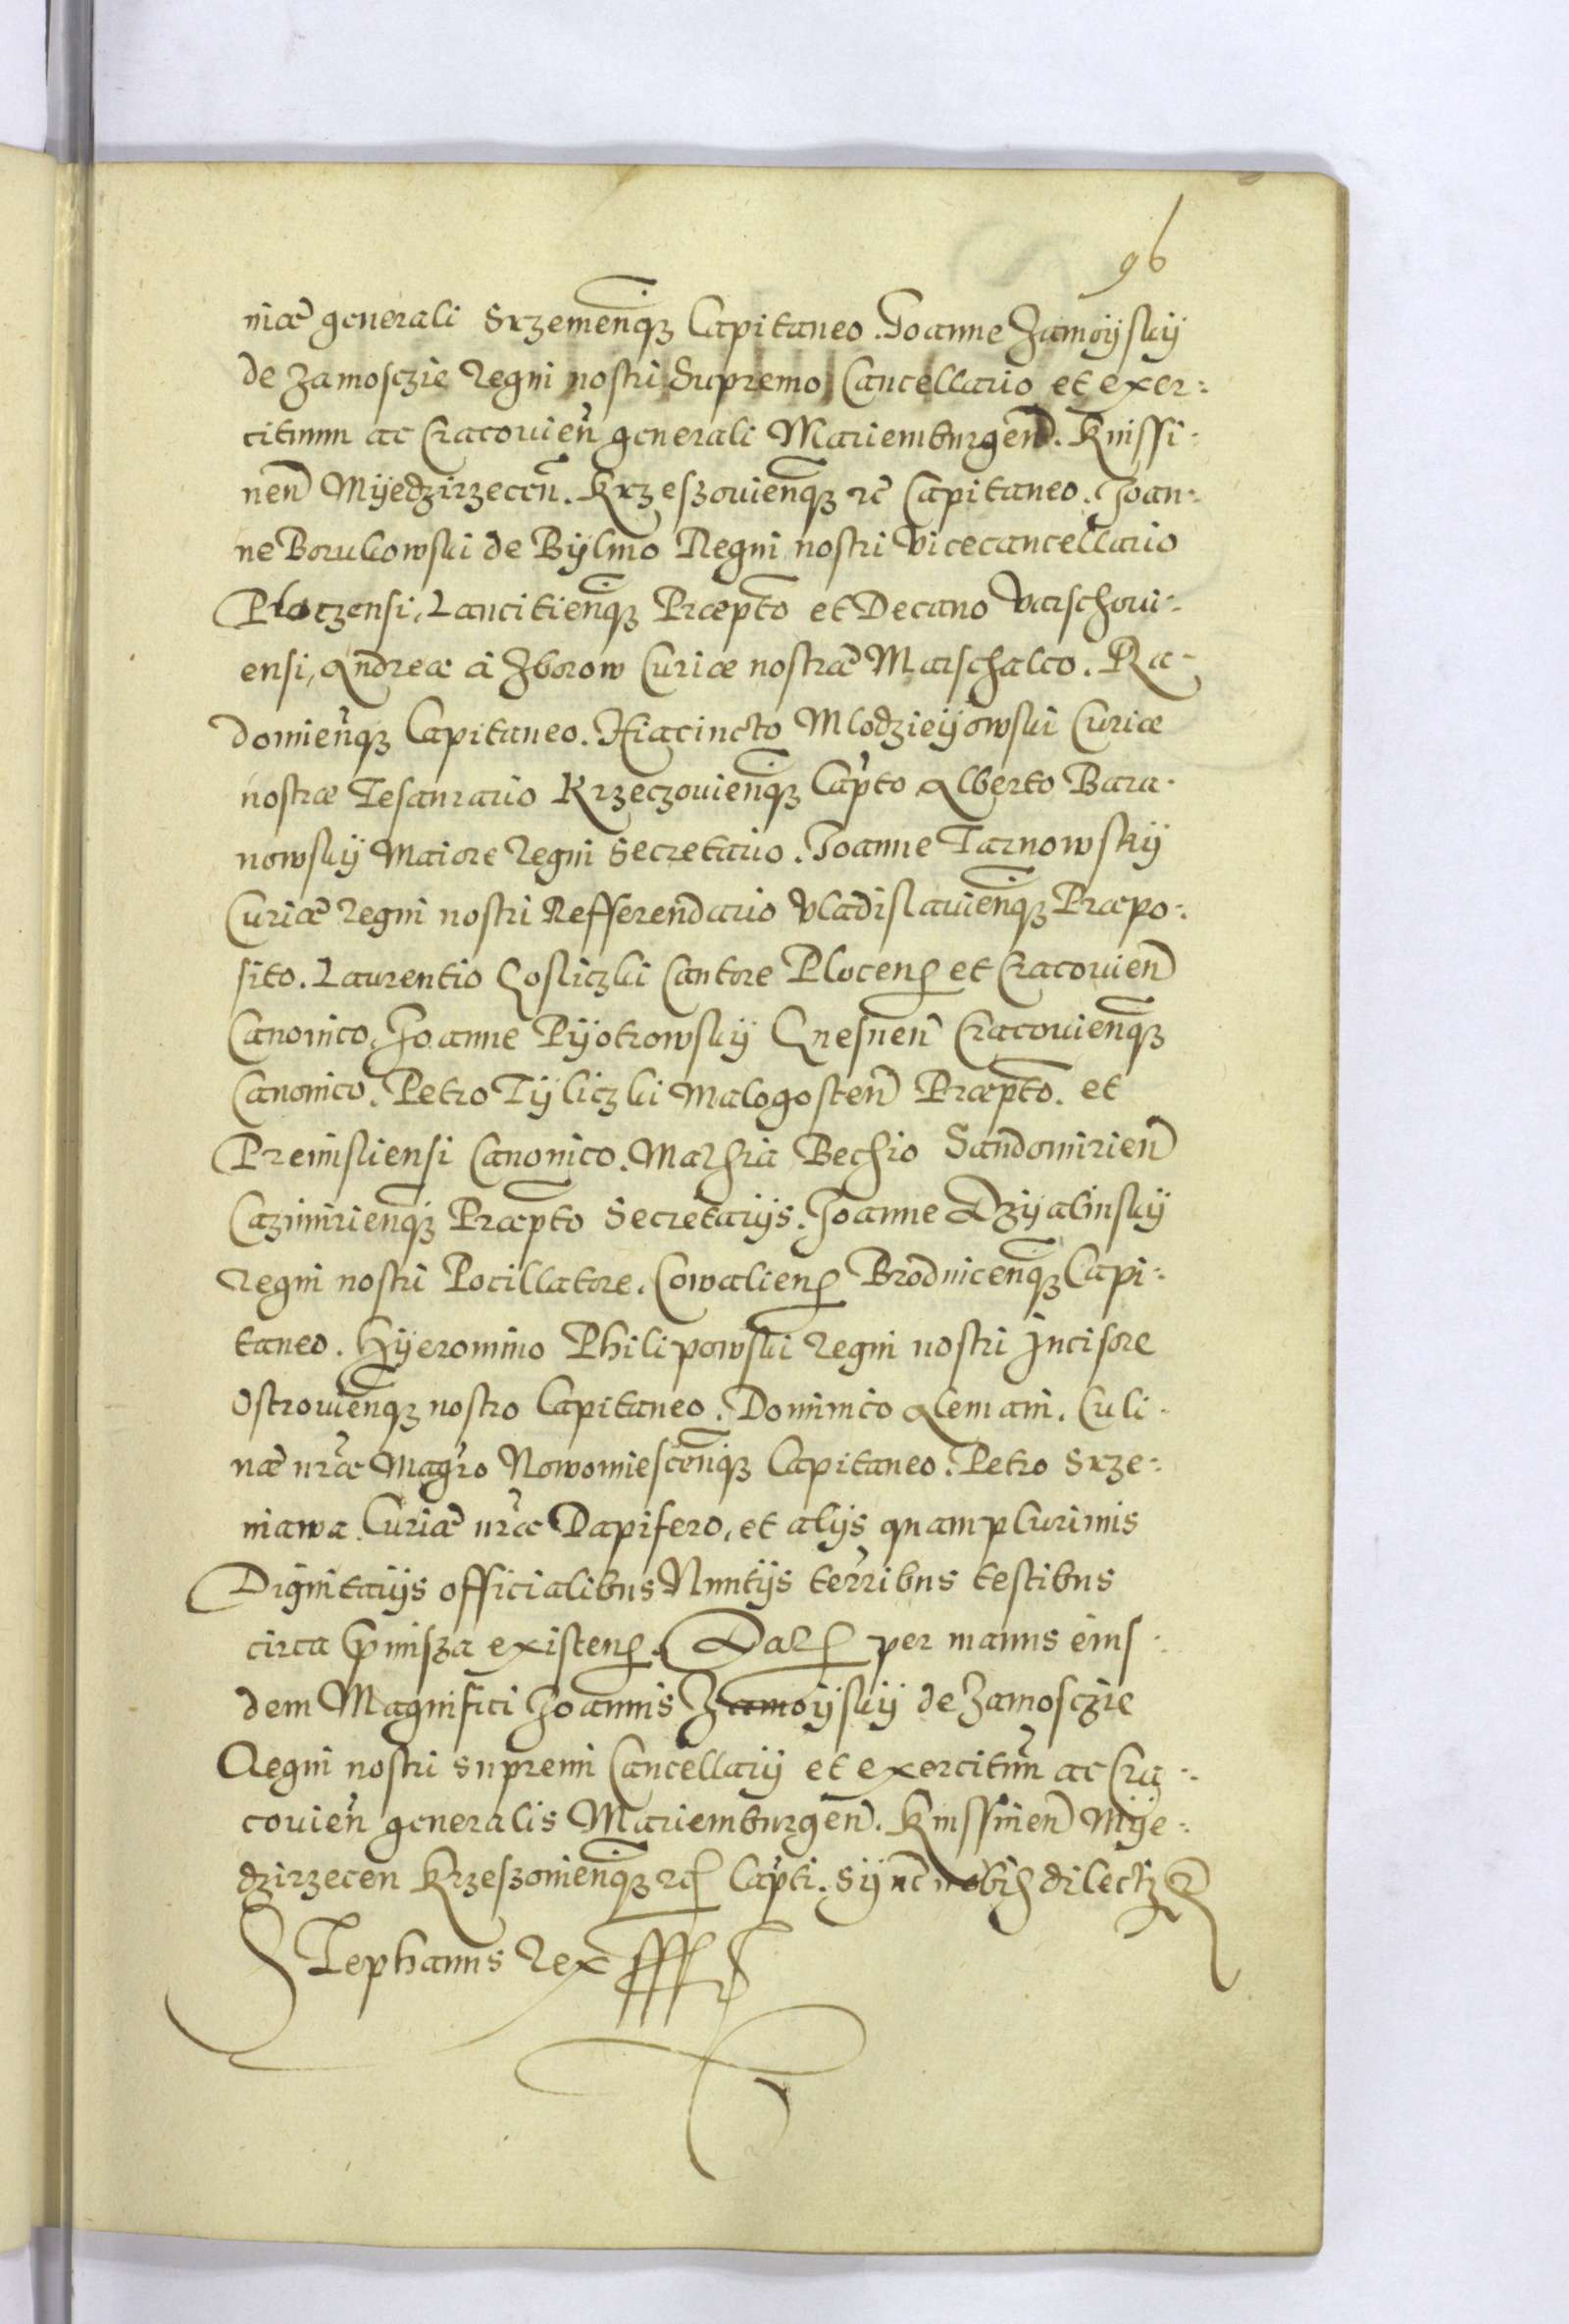 96
niæ generali Srzemenqз Capitaneo. Joanne Zamoÿskÿ
de Zamosczie Regni nostri Supremo Cancellario et exer:
cituum ac Cracovien generali Mariemburgen. Knissi:
nen Mÿedzirzecen. Krzeszovienqз rc Capitaneo. Joan:
ne Borukowski de Bÿlino Regni nostri Vicecancellario
Ploczensi, Lancitienqз Præpto et Decano Varschovi:
ensi, Andrea à Zborow Curiæ nostræ Marschalco. Ra:
domienqз Capitaneo. Hiacincto Mlodzieÿowski Curiæ
nostræ Tesaurario Krzeczovienqз Capto Alberto Bara:
nowskÿ Maiore Regni Secretario. Joanne Tarnowskÿ
Curiæ Regni nostri Refferendario Vladislavienqз Præpo:
sito. Laurentio Gosliczki Cantore Plocens et Cracovien
Canonico, Joanne Pÿotrowskÿ Gnesnen Cracovienqз
Canonico. Petro Tÿliczki Malogosten Præpto. et
Premisliensi Canonico. Mathia Bechio Sandomirien
Cazimirienqз Præpto Secretarÿs. Joanne Dzÿalinskÿ
Regni nostri Pocillatore. Cowaliens Brodnicenqз Capi:
taneo. Hÿeronimo Philipowski Regni nostri Incisore
Ostrovienqз nostro Capitaneo. Dominico Alemani. Culi:
næ nræ Magro Nowomiescenqз Capitaneo. Petro Srze:
niawa Curiæ nræ Dapifero, et alÿs quamplurimis
Dignitarÿs officialibus Nuntÿs terribus testibus
circa pmisza existens. Dat per manus eius:
dem Magnifici Joannis Zamoÿskÿ de Zamosczie
Regni nostri supremi Cancellarÿ et exercituum ac Cra:
covien generalis Mariemburgen. Knissinen Mÿe:
dzirzecen Krzeszovienqз rc Capti. Sÿnc nobis dilecti
Stephanus Rex